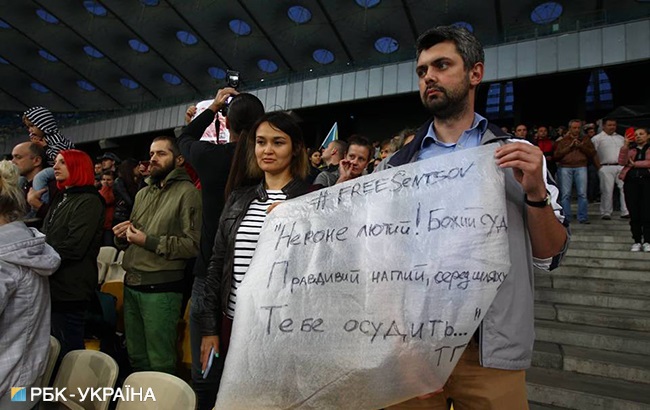 #FREESENTSOV
"Нероне лютий! Божий суд
Правдивий наглий, серед шляху
Тебе осудить..."
ТГ
РБК-УКРАЇНА